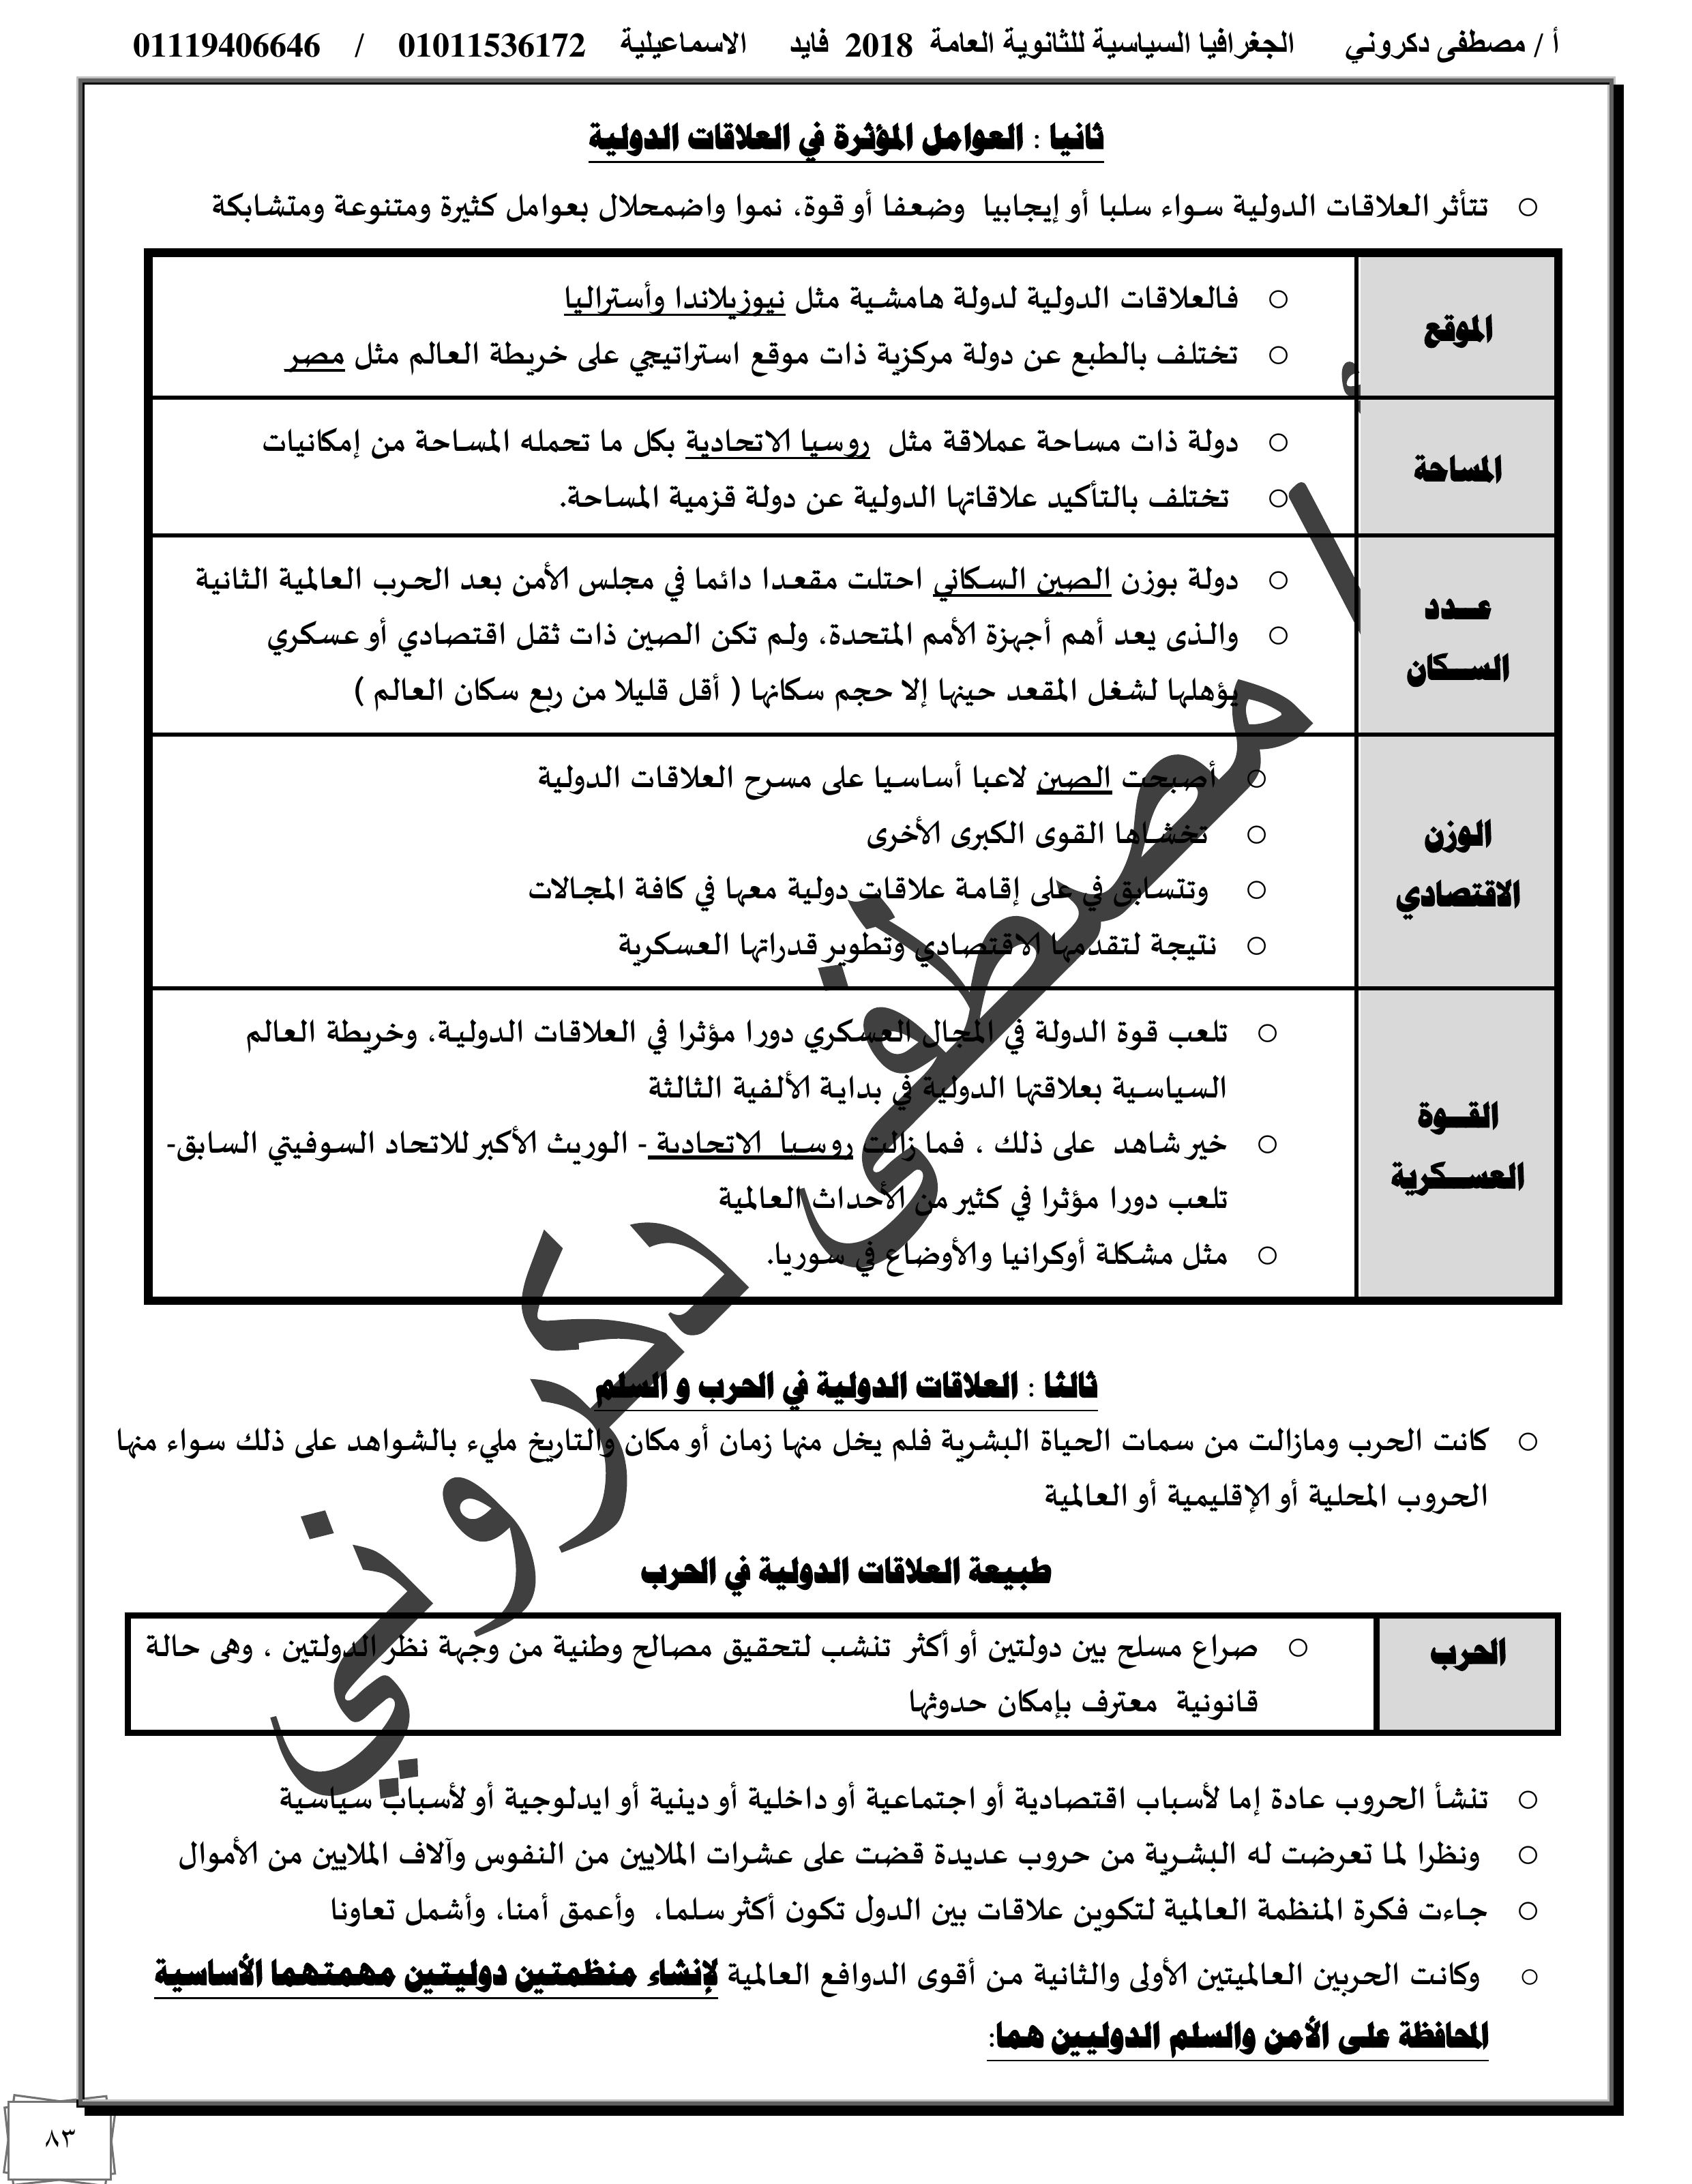 أ / مصطفى دكروني الجغرافيا السياسية للثانوية العامة 2018 فايد الاسماعيلية 01011536172 / 01119406646
ثانيا : العوامل المؤثرة في العلاقات الدولية
○ تتأثر العلاقات الدولية سواء سلبا أو إيجابيا وضعفا أو قوة، نموا واضمحلال بعوامل كثيرة ومتنوعة ومتشابكة
الموقع
○ فالعلاقات الدولية لدولة هامشية مثل نيوزيلاندا وأستراليا
○ تختلف بالطبع عن دولة مركزية ذات موقع استراتيجي على خريطة العالم مثل مصر
المساحة
○ دولة ذات مساحة عملاقة مثل روسيا الاتحادية بكل ما تحمله المساحة من إمكانيات
○ تختلف بالتأكيد علاقاتها الدولية عن دولة قزمية المساحة.
عـــدد
الســـكان
○ دولة بوزن الصين السكاني احتلت مقعدا دائما في مجلس الأمن بعد الحرب العالمية الثانية
○ والذى يعد أهم أجهزة الأمم المتحدة، ولم تكن الصين ذات ثقل اقتصادي أو عسكري
يؤهلها لشغل المقعد حينها إلا حجم سكانها ( أقل قليلا من ربع سكان العالم )
الوزن
الاقتصادي
○ أصبحت الصين لاعبا أساسيا على مسرح العلاقات الدولية
○ تخشاها القوى الكبرى الأخرى
○ وتتسابق في على إقامة علاقات دولية معها في كافة المجالات
○ نتيجة لتقدمها الاقتصادي وتطوير قدراتها العسكرية
القـــوة
العســـكرية
○ تلعب قوة الدولة في المجال العسكري دورا مؤثرا في العلاقات الدولية، وخريطة العالم
السياسية بعلاقتها الدولية في بداية الألفية الثالثة
○ خير شاهد على ذلك ، فما زالت روسيا الاتحادية - الوريث الأكبر للاتحاد السوفيتي السابق-
تلعب دورا مؤثرا في كثير من الأحداث العالمية
○ مثل مشكلة أوكرانيا والأوضاع في سوريا.
أ / مصطفى دكروني
ثالثا : العلاقات الدولية في الحرب و السلم
○ كانت الحرب ومازالت من سمات الحياة البشرية فلم يخل منها زمان أو مكان والتاريخ مليء بالشواهد على ذلك سواء منها
الحروب المحلية أو الإقليمية أو العالمية
طبيعة العلاقات الدولية في الحرب
الحرب
○ صراع مسلح بين دولتين أو أكثر تنشب لتحقيق مصالح وطنية من وجهة نظر الدولتين ، وهى حالة
قانونية معترف بإمكان حدوثها
○ تنشأ الحروب عادة إما لأسباب اقتصادية أو اجتماعية أو داخلية أو دينية أو ايدلوجية أو لأسباب سياسية
○ ونظرا لما تعرضت له البشرية من حروب عديدة قضت على عشرات الملايين من النفوس وآلاف الملايين من الأموال
○ جاءت فكرة المنظمة العالمية لتكوين علاقات بين الدول تكون أكثر سلما، وأعمق أمنا، وأشمل تعاونا
○ وكانت الحربين العالميتين الأولى والثانية من أقوى الدوافع العالمية لإنشاء منظمتين دوليتين مهمتهما الأساسية
المحافظة على الأمن والسلم الدوليين هما:
٨٣